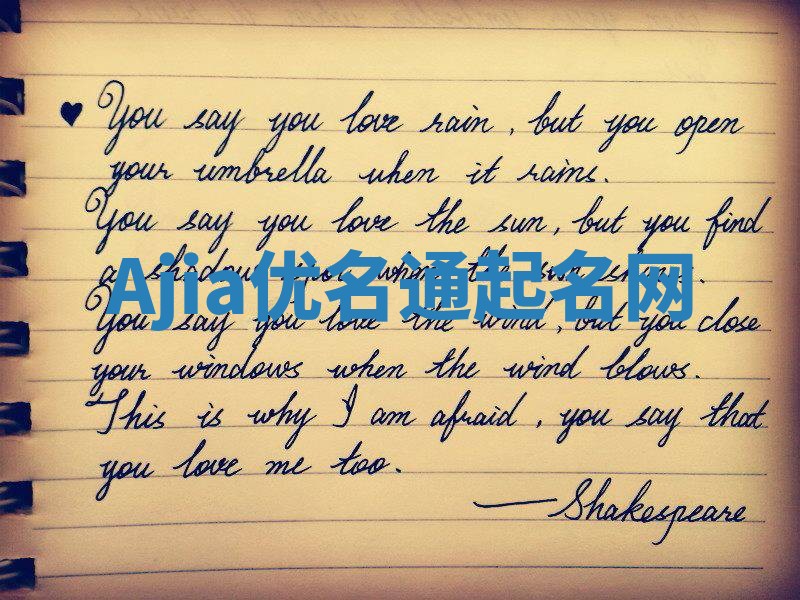 ♥ You say you love rain, but you open
your umbrella when it rains.
You say you love the sun, but you find
a shadow spot when the sun shines.
Ajia优名通起名网
You say you love the wind, but you close
your windows when the wind blows.
This is why I am afraid, you say that
you love me too.
—Shakespeare